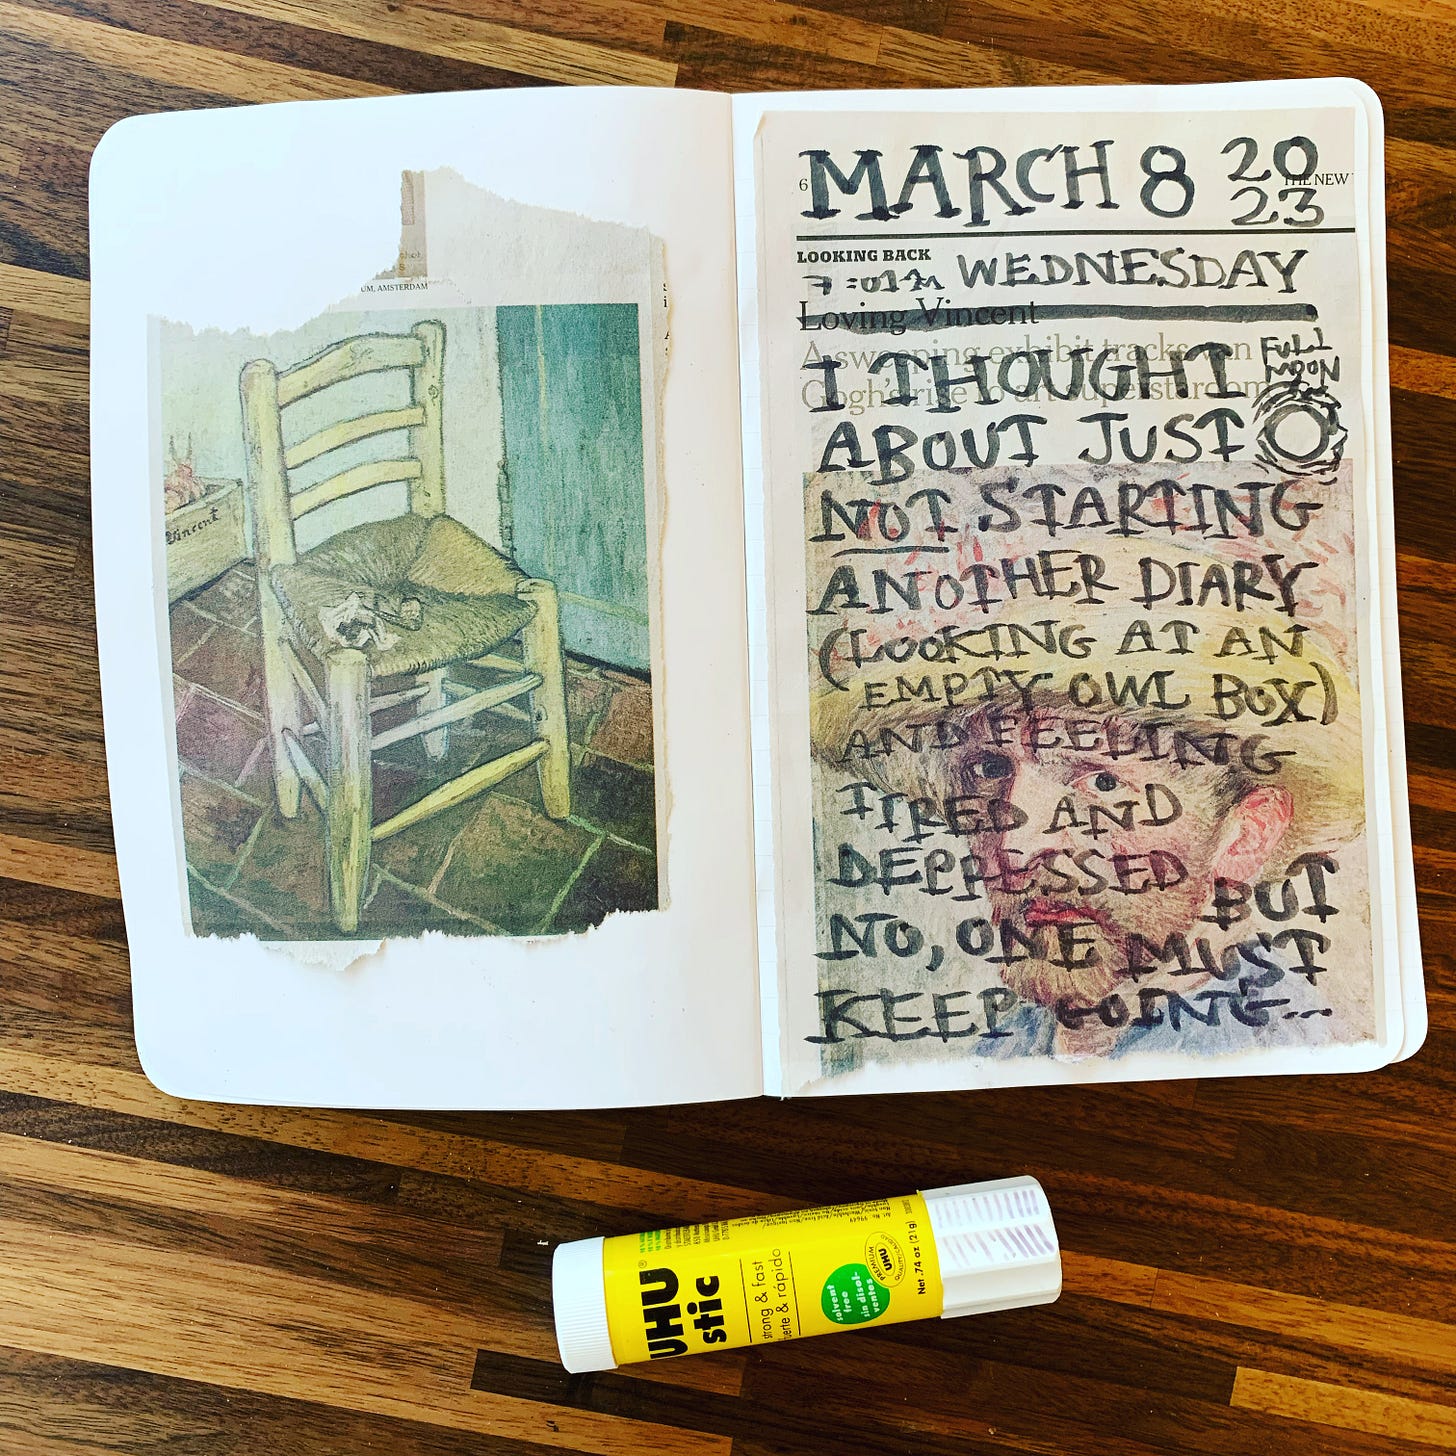 UM, AMSTERDAM
Vincent
6
MARCH 8 2023
THE NEW
LOOKING BACK
WEDNESDAY
Loving Vincent
A sweeping exhibit tracks van
Gogh's rise to art superstardom
FULL
MOON
I THOUGHT
ABOUT JUST
NOT STARTING
ANOTHER DIARY
(LOOKING AT AN
EMPTY OWL BOX)
AND FEELING
TIRED AND
DEPRESSED BUT
NO, ONE MUST
KEEP GOING...
UHU
stic
strong & fast
fuerte & rápido
solvent
free
sin disol-
ventes
PREMIUM
UHU
QUALITY/CALIDAD
Net .74 oz (21g)
Art. No. 99649